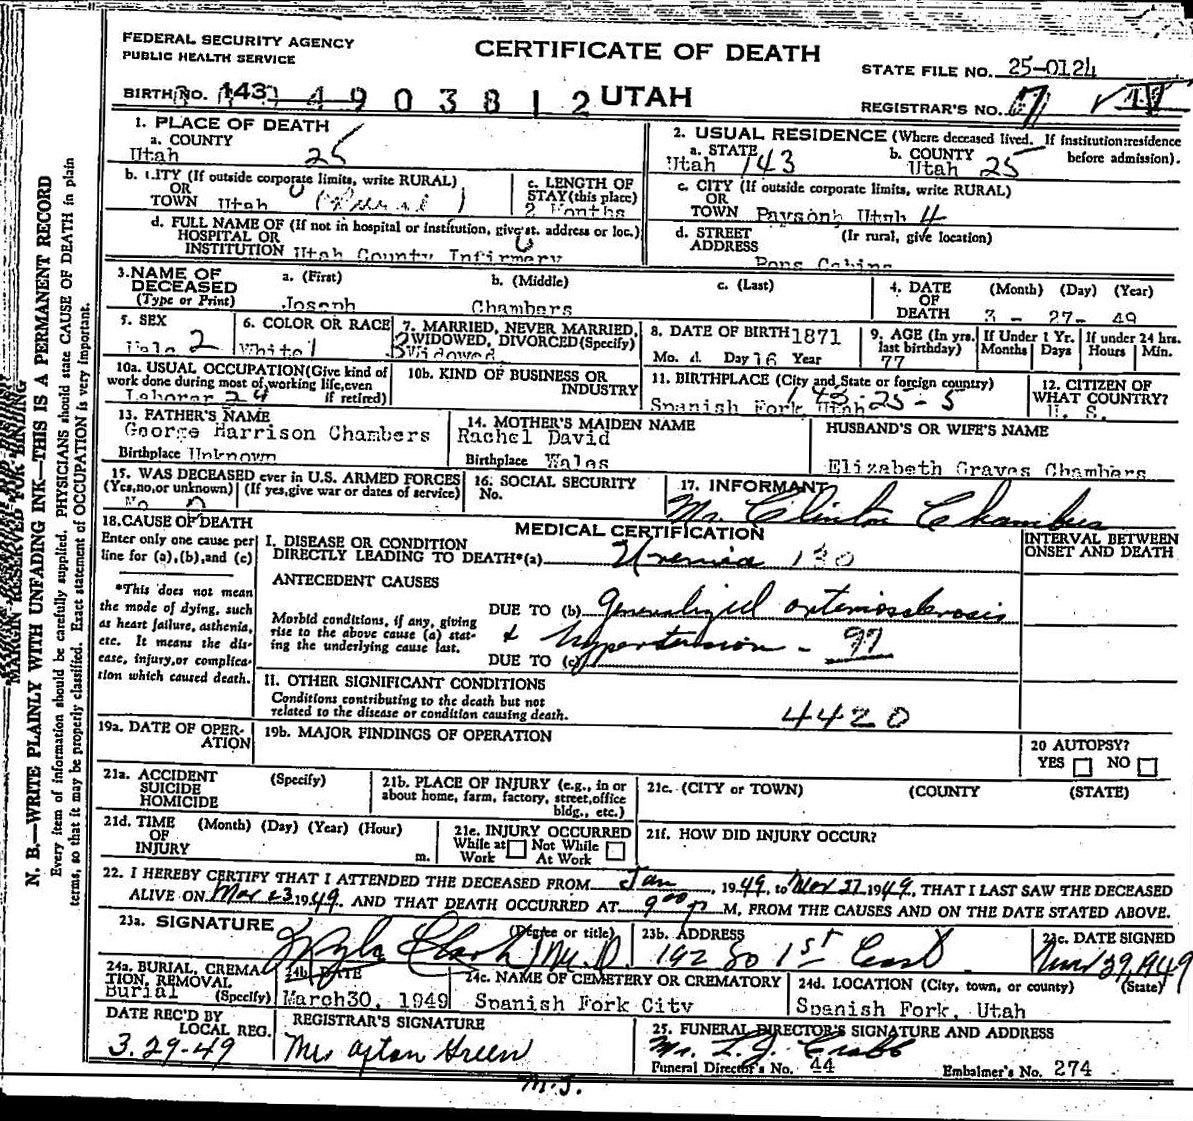 FEDERAL SECURITY AGENCY
PUBLIC HEALTH SERVICE
CERTIFICATE OF DEATH
STATE FILE NO. 25-0124
BIRTH NO. 143 4903812 UTAH
REGISTRAR'S NO.
1. PLACE OF DEATH
a. COUNTY
Utah 25
2. USUAL RESIDENCE (Where deceased lived. If institution:residence before admission).
a. STATE Utah 143
b. COUNTY Utah 25
b. CITY (If outside corporate limits, write RURAL)
OR
TOWN Utah (Rural)
c. LENGTH OF
STAY (this place)
2 Months
c. CITY (If outside corporate limits, write RURAL)
OR
TOWN Payson Utah 4
d. FULL NAME OF (If not in hospital or institution, give st. address or loc.)
HOSPITAL OR
INSTITUTION Utah County Infirmery
d. STREET (If rural, give location)
ADDRESS
Pons Cabins
3. NAME OF
DECEASED
(Type or Print)
a. (First) b. (Middle) c. (Last)
Joseph Chambers
4. DATE
OF
DEATH
(Month) (Day) (Year)
3 - 27- 49
5. SEX
Male 2
6. COLOR OR RACE
White 1
7. MARRIED, NEVER MARRIED,
WIDOWED, DIVORCED (Specify)
3 Widowed
8. DATE OF BIRTH 1871
Mo. 4 Day 16 Year
9. AGE (In yrs.
last birthday)
77
If Under 1 Yr.
Months Days
If under 24 hrs.
Hours Min.
10a. USUAL OCCUPATION (Give kind of
work done during most of working life, even
if retired)
Laborer 24
10b. KIND OF BUSINESS OR
INDUSTRY
11. BIRTHPLACE (City and State or foreign country)
Spanish Fork, Utah 143-25-5
12. CITIZEN OF
WHAT COUNTRY?
U. S.
13. FATHER'S NAME
George Harrison Chambers
Birthplace Unknown
14. MOTHER'S MAIDEN NAME
Rachel David
Birthplace Wales
HUSBAND'S OR WIFE'S NAME
Elizabeth Graves Chambers
15. WAS DECEASED ever in U.S. ARMED FORCES
(Yes, no, or unknown) (If yes, give war or dates of service)
No 0
16. SOCIAL SECURITY
No.
17. INFORMANT
Mr. Clinton Chambers
18. CAUSE OF DEATH
Enter only one cause per
line for (a), (b), and (c)
MEDICAL CERTIFICATION
INTERVAL BETWEEN
ONSET AND DEATH
I. DISEASE OR CONDITION
DIRECTLY LEADING TO DEATH*(a) Uremia 130
*This does not mean
the mode of dying, such
as heart failure, asthenia,
etc. It means the dis-
ease, injury, or complica-
tion which caused death.
ANTECEDENT CAUSES
Morbid conditions, if any, giving
rise to the above cause (a) stat-
ing the underlying cause last.
DUE TO (b) generalized arteriosclerosis
& hypertension - 97
DUE TO (c)
II. OTHER SIGNIFICANT CONDITIONS
Conditions contributing to the death but not
related to the disease or condition causing death.
4420
19a. DATE OF OPER-
ATION
19b. MAJOR FINDINGS OF OPERATION
20 AUTOPSY?
YES NO
21a. ACCIDENT (Specify)
SUICIDE
HOMICIDE
21b. PLACE OF INJURY (e.g., in or
about home, farm, factory, street, office
bldg., etc.)
21c. (CITY or TOWN) (COUNTY (STATE)
21d. TIME (Month) (Day) (Year) (Hour)
OF
INJURY m.
21e. INJURY OCCURRED
While at Not While
Work At Work
21f. HOW DID INJURY OCCUR?
22. I HEREBY CERTIFY THAT I ATTENDED THE DECEASED FROM Jan, 1949, to Mar 27 1949, THAT I LAST SAW THE DECEASED
ALIVE ON Mar 23 1949. AND THAT DEATH OCCURRED AT 9:00 P M, FROM THE CAUSES AND ON THE DATE STATED ABOVE.
23a. SIGNATURE (Degree or title)
Clark M.D.
23b. ADDRESS
192 So 1st East
23c. DATE SIGNED
Mar 29, 1949
24a. BURIAL, CREMA-
TION, REMOVAL
Burial (Specify)
24b. DATE
March 30, 1949
24c. NAME OF CEMETERY OR CREMATORY
Spanish Fork City
24d. LOCATION (City, town, or county) (State)
Spanish Fork, Utah
DATE REC'D BY
LOCAL REG.
3.29-49
REGISTRAR'S SIGNATURE
Mrs Afton Green
25. FUNERAL DIRECTOR'S SIGNATURE AND ADDRESS
Funeral Director's No. 44 Embalmer's No. 274
M.J.
MARGIN RESERVED FOR BINDING
N. B.—WRITE PLAINLY WITH UNFADING INK—THIS IS A PERMANENT RECORD
Every item of information should be carefully supplied. PHYSICIANS should state CAUSE OF DEATH in plain
terms, so that it may be properly classified. Exact statement of OCCUPATION is very important.